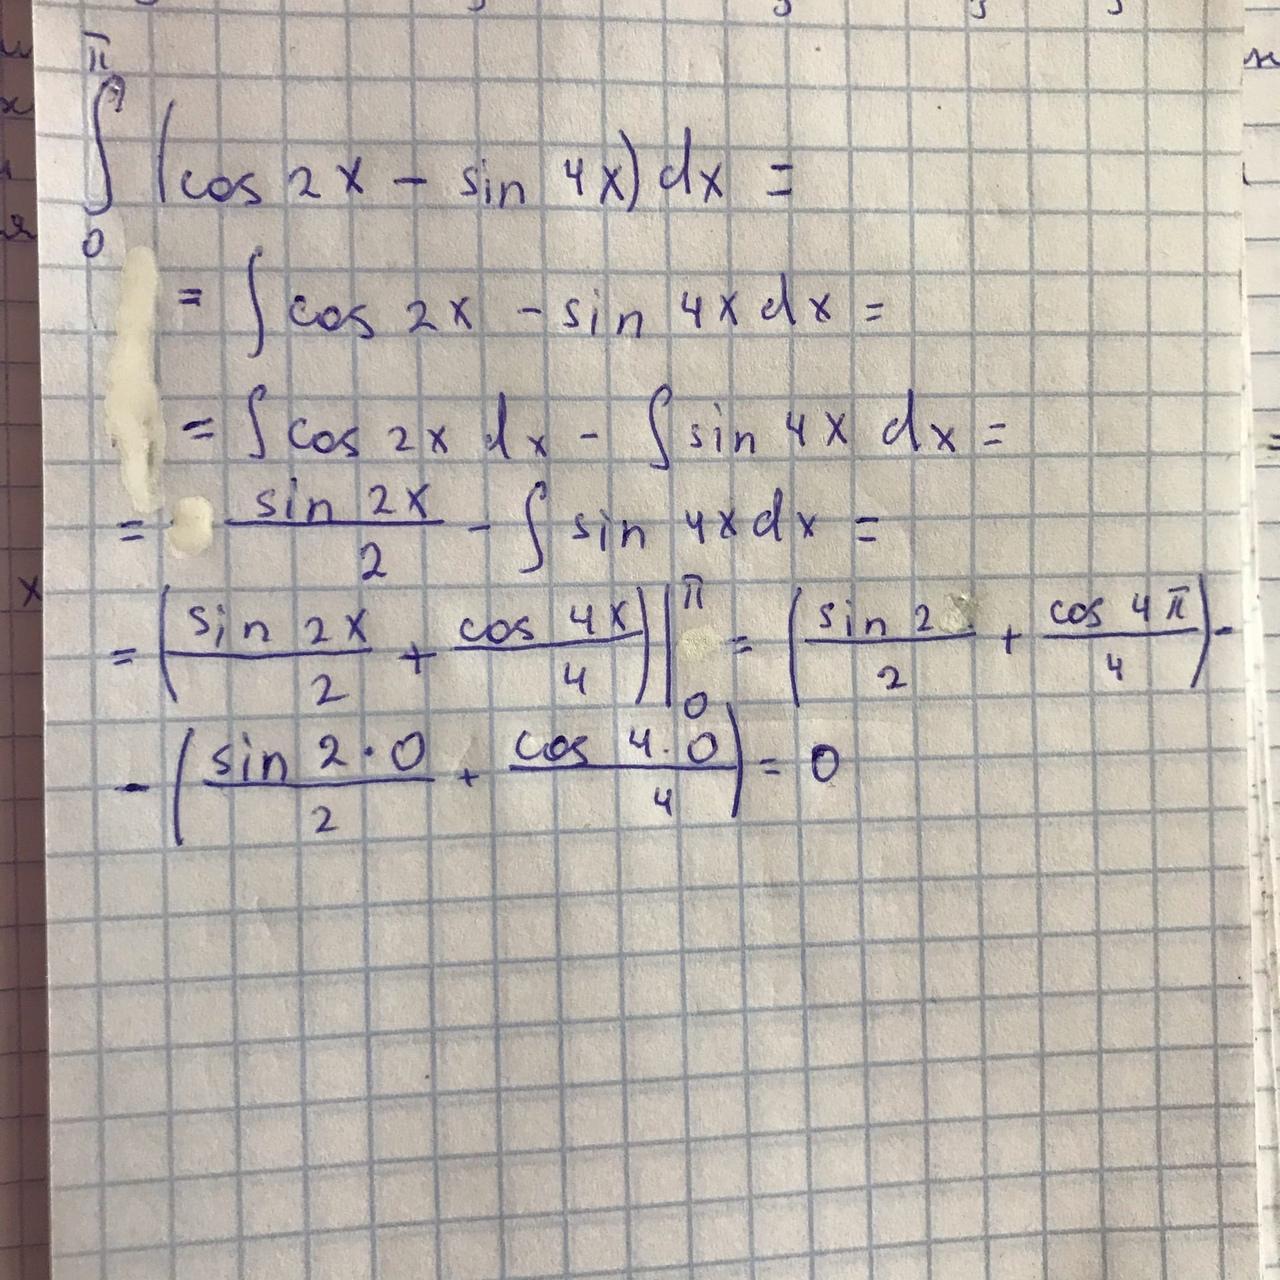 π
∫ (cos 2x - sin 4x) dx =
0
= ∫ cos 2x - sin 4x dx =
= ∫ cos 2x dx - ∫ sin 4x dx =
= sin 2x / 2 - ∫ sin 4x dx =
= (sin 2x / 2 + cos 4x / 4) |π 0 = (sin 2 / 2 + cos 4π / 4) -
- (sin 2·0 / 2 + cos 4·0 / 4) = 0